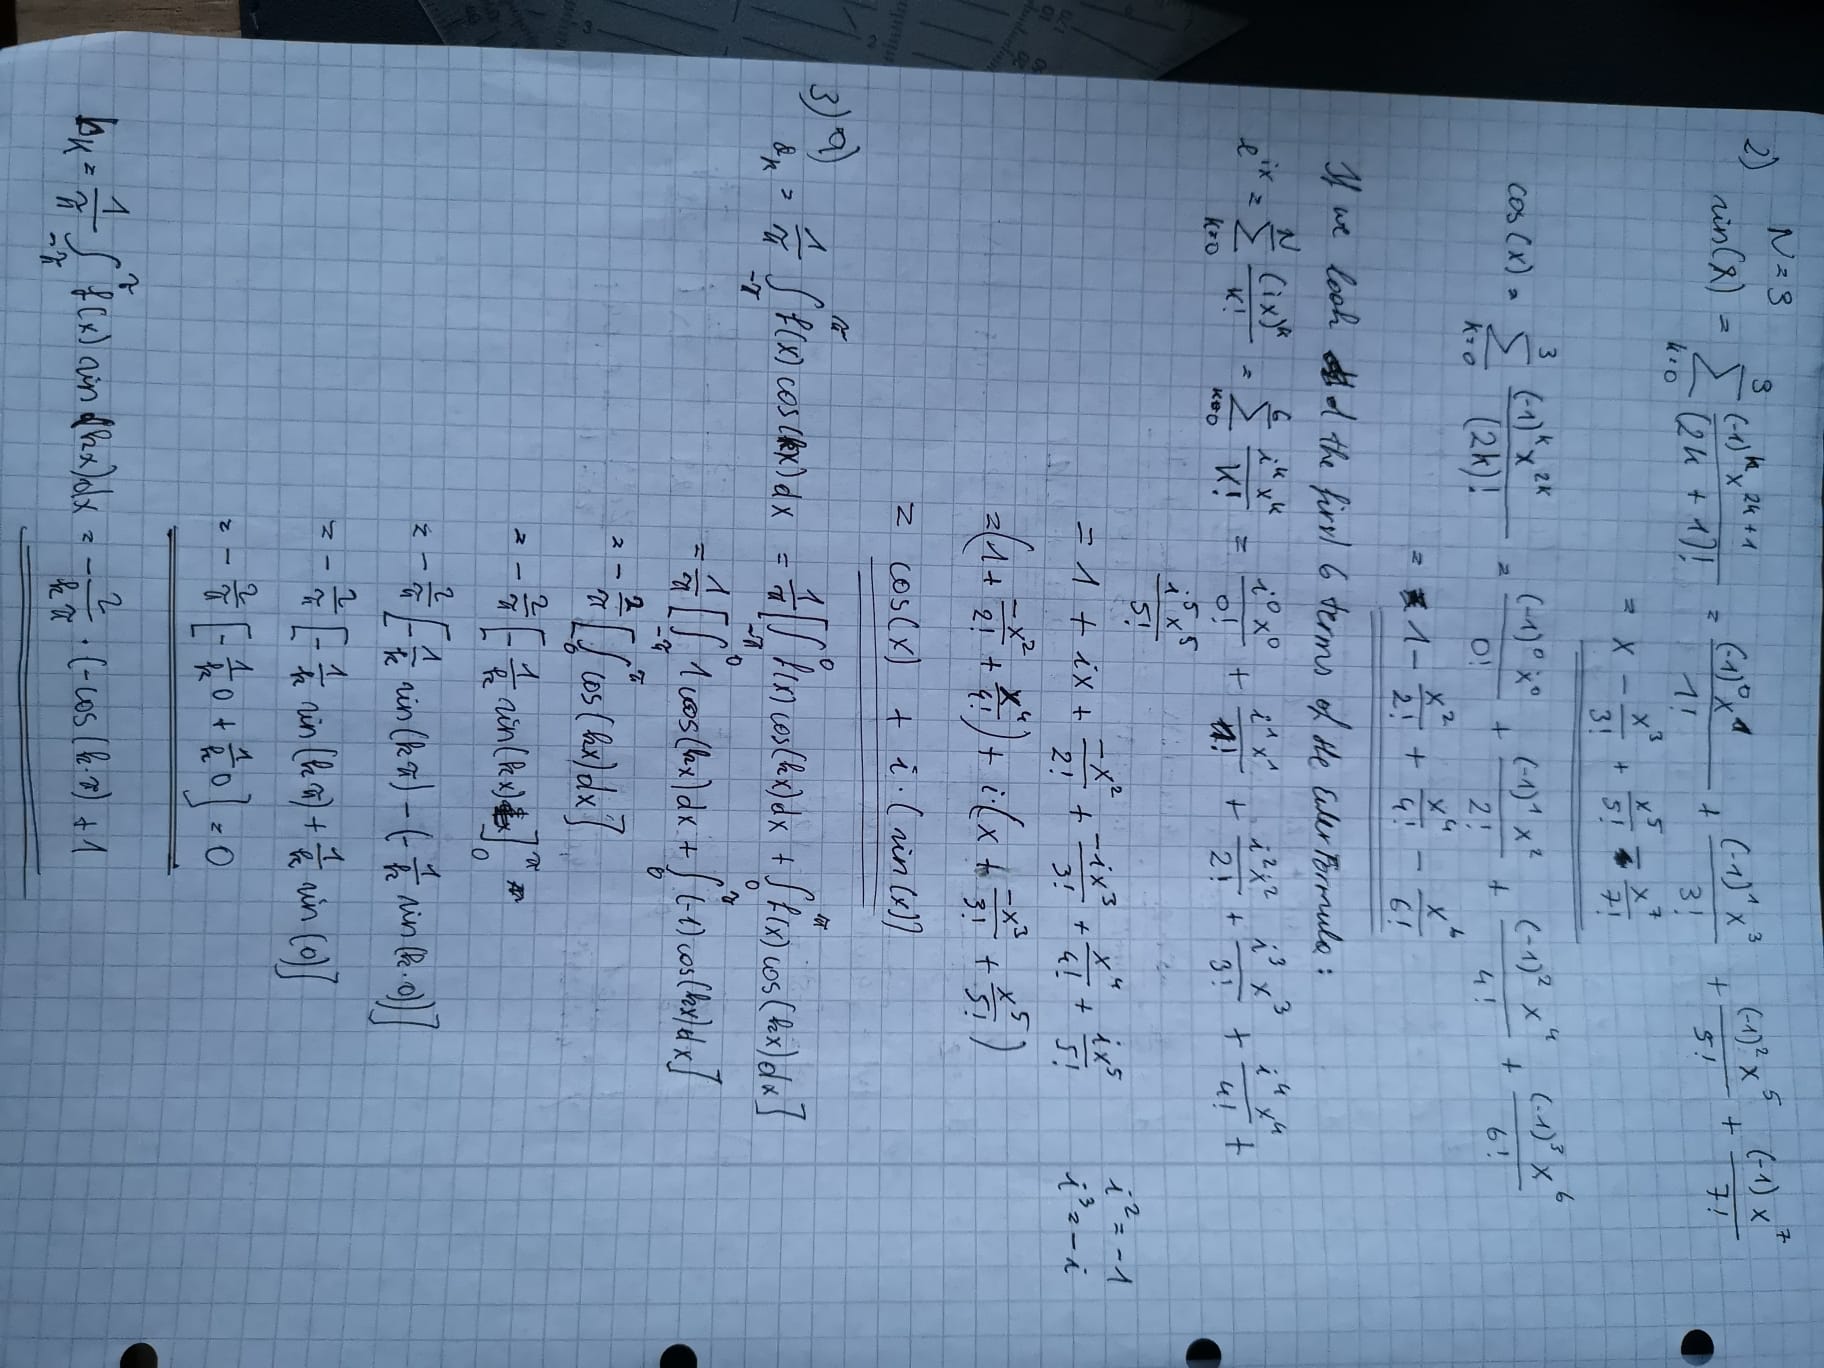 2) N = 3
sin(x) = ∑_{k=0}^{3} (-1)^k x^{2k+1} / (2k+1)! = (-1)^0 x^1 / 1! + (-1)^1 x^3 / 3! + (-1)^2 x^5 / 5! + (-1) x^7 / 7!
= x - x^3/3! + x^5/5! - x^7/7!
cos(x) = ∑_{k=0}^{3} (-1)^k x^{2k} / (2k)! = (-1)^0 x^0 / 0! + (-1)^1 x^2 / 2! + (-1)^2 x^4 / 4! + (-1)^3 x^6 / 6!
= 1 - x^2/2! + x^4/4! - x^6/6!
If we look the first 6 terms of the Euler Formula:
e^{ix} = ∑_{k=0}^{N} (ix)^k / k! = ∑_{k=0}^{6} i^k x^k / k! = i^0 x^0 / 0! + i^1 x^1 / 1! + i^2 x^2 / 2! + i^3 x^3 / 3! + i^4 x^4 / 4! +
i^5 x^5 / 5!
= 1 + ix + -x^2/2! + -ix^3/3! + x^4/4! + ix^5/5! i^2 = -1
i^3 = -i
= (1 + -x^2/2! + x^4/4!) + i·(x + -x^3/3! + x^5/5!)
= cos(x) + i·(sin(x))
3) a)
a_k = 1/π ∫_{-π}^{π} f(x) cos(kx) dx = 1/π [∫_{-π}^{0} f(x) cos(kx) dx + ∫_{0}^{π} f(x) cos(kx) dx]
= 1/π [∫_{-π}^{0} 1 cos(kx) dx + ∫_{0}^{π} (-1) cos(kx) dx]
= - 2/π [∫_{0}^{π} cos(kx) dx]
= - 2/π [- 1/k sin(kx)]_{0}^{π}
= - 2/π [- 1/k sin(kπ) - (- 1/k sin(k·0))]
= - 2/π [- 1/k sin(kπ) + 1/k sin(0)]
= - 2/π [- 1/k 0 + 1/k 0] = 0
b_k = 1/π ∫_{-π}^{π} f(x) sin(kx) dx = - 2/(kπ) · (-cos(k·π) + 1